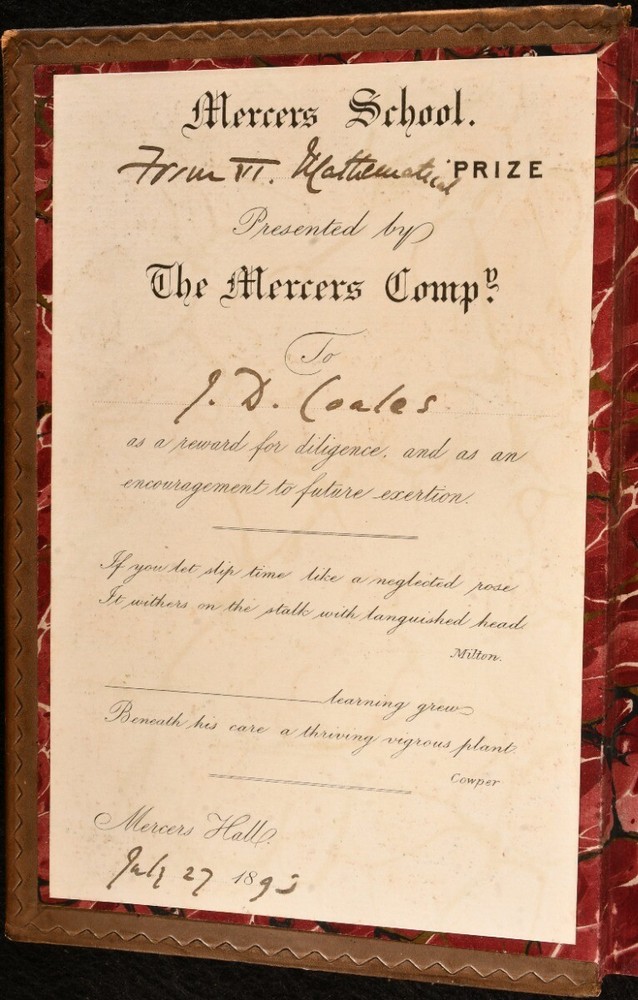 Mercers School.
Form VI. Mathematical PRIZE
Presented by
The Mercers Compy.
To
J. D. Coales
as a reward for diligence, and as an
encouragement to future exertion.
If you let slip time like a neglected rose
It withers on the stalk with languished head
Milton.
learning grew
Beneath his care a thriving vigrous plant.
Cowper
Mercers Hall.
July 27